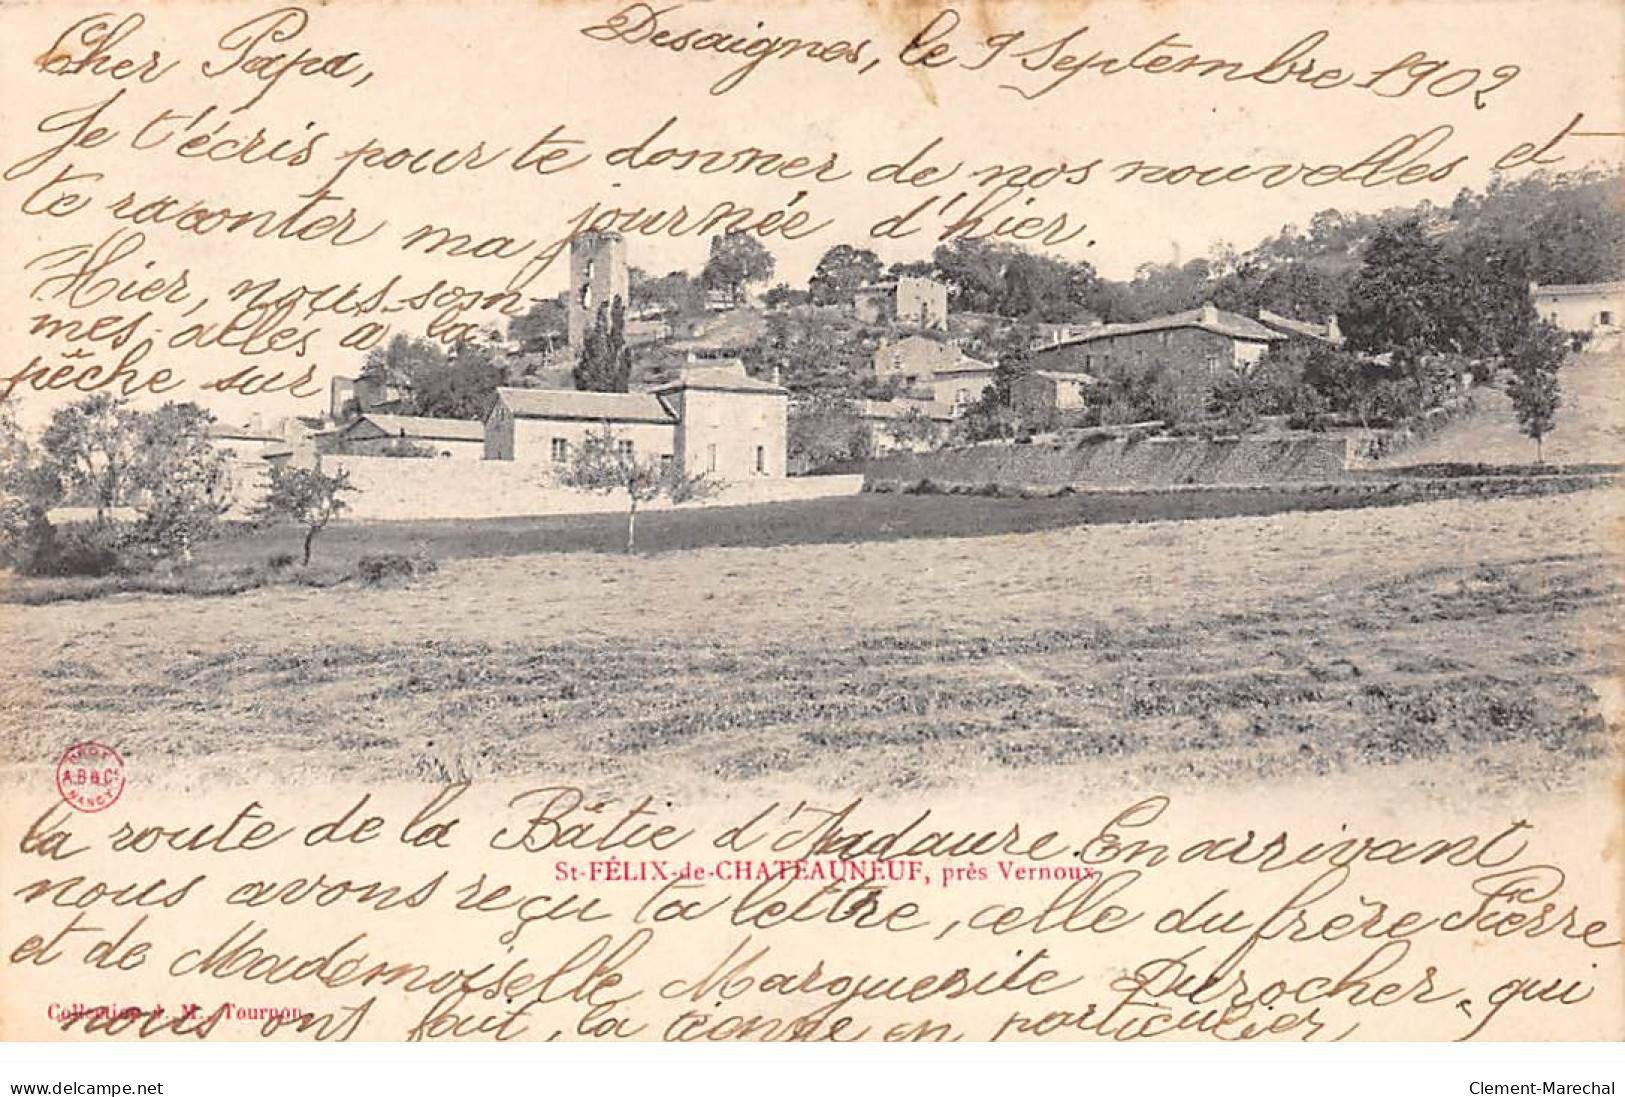 Cher Papa,
Desaignes, le 9 Septembre 1902
Je t'écris pour te donner de nos nouvelles et
te raconter ma journée d'hier.
Hier, nous som-
mes allés a la
pêche sur
la route de la Bâtie d'Andaure. En arrivant
St-FÉLIX-de-CHATEAUNEUF, près Vernoux
nous avons reçu ta lettre, celle du frère Pierre
et de Mademoiselle Marguerite Durocher, qui
Collection A. M., Tournon
nous ont fait, la tienne en particulier
A.B & Co
NANCY
www.delcampe.net
Clement-Marechal